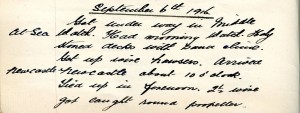 September 6th 19th
Got under way in Middle
At Sea Watch. Had morning Watch. Holy
stoned decks with sand
Got up wire hawsers. Arrived
Newcastle Newcastle about 10 o'clock.
Tied up in forenoon. 2½ wire
got caught round propeller.